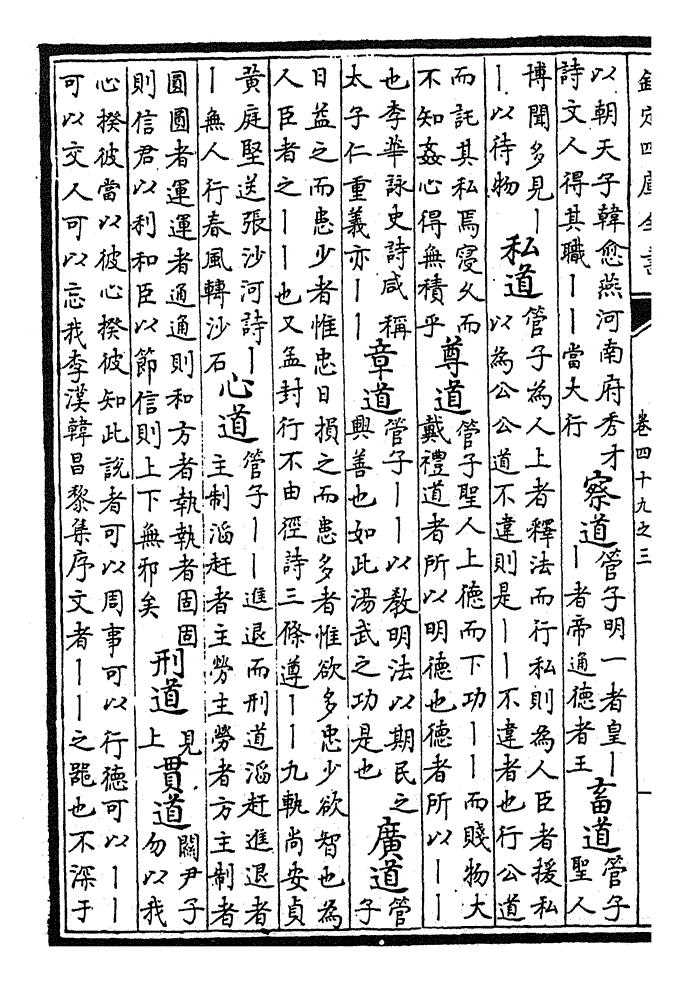 欽定四庫全書
卷四十九之三
以朝天子韓愈燕河南府秀才
詩文人得其職｜｜當大行
察道
管子明一者皇｜
｜者帝通德者王
畜道
管子
聖人
博聞多見｜
｜以待物
私道
管子為人上者釋法而行私則為人臣者援私
以為公公道不違則是｜｜不違者也行公道
而託其私焉寖久而
不知姦心得無積乎
尊道
管子聖人上德而下功｜｜而賤物大
戴禮道者所以明德也德者所以｜｜
也李華詠史詩咸稱
太子仁重義亦｜｜
章道
管子｜｜以教明法以期民之
興善也如此湯武之功是也
廣道
管
子
日益之而患少者惟忠日損之而患多者惟欲多忠少欲智也為
人臣者之｜｜也又孟封行不由徑詩三條遵｜｜九軌尚安貞
黄庭堅送張沙河詩｜
｜無人行春風轉沙石
心道
管子｜｜進退而刑道滔赶進退者
主制滔赶者主勞主勞者方主制者
圓圓者運運者通通則和方者執執者固固
則信君以利和臣以節信則上下無邪矣
刑道
見
上
貫道
關尹子
勿以我
心揆彼當以彼心揆彼知此説者可以周事可以行德可以｜｜
可以交人可以忘我李漢韓昌黎集序文者｜｜之器也不深于